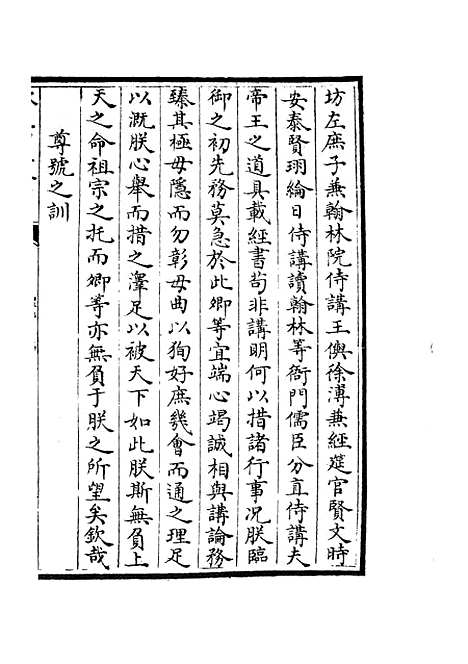 坊左庶子兼翰林院侍講王㒜徐溥兼經筵官賢文時
安泰賢珝綸日侍講讀翰林等衙門儒臣分直侍講夫
帝王之道具載經書茍非講明何以措諸行事况朕臨
御之初先務莫急於此卿等宜端心竭誠相與講論務
臻其極毋隱而勿彰毋曲以狥好庶幾會而通之理足
以溉朕心舉而措之澤足以被天下如此朕斯無負上
天之命祖宗之托而卿等亦無負于朕之所望矣欽哉
尊號之訓